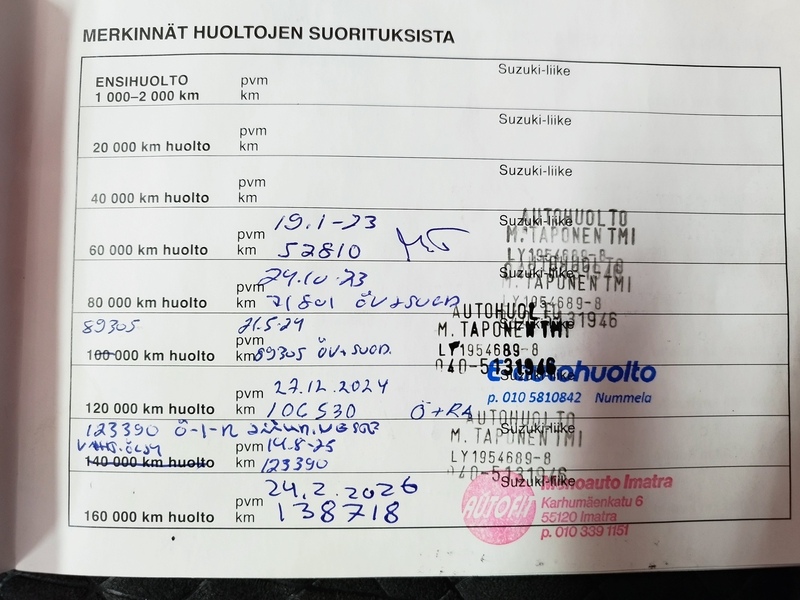 MERKINNÄT HUOLTOJEN SUORITUKSISTA
ENSIHUOLTO pvm Suzuki-liike
1 000–2 000 km km
pvm Suzuki-liike
20 000 km huolto km
pvm Suzuki-liike
40 000 km huolto km
19.1-23 Suzuki-liike
pvm AUTOHUOLTO
60 000 km huolto km 52810 M. TAPONEN TMI
LY1954689-8
24.10-23 Suzuki-liike
pvm AUTOHUOLTO
80 000 km huolto km 71801 ÖV+SUOD M. TAPONEN TMI
LY1954689-8
89305 21.5-24 Suzuki-liike
pvm AUTOHUOLTO
100 000 km huolto km 89305 ÖV+SUOD. M. TAPONEN TMI
LY1954689-8
040-5131946
27.12.2024 Suzuki-liike
pvm autohuolto
120 000 km huolto km 106530 Ö+RA p. 010 5810842 Nummela
123390 Ö-I-R Suzuki-liike
pvm 14.8-25 AUTOHUOLTO
140 000 km huolto km 123390 M. TAPONEN TMI
LY1954689-8
040-5131946
24.2.2026 Suzuki-liike
pvm AUTOFIT Monoauto Imatra
160 000 km huolto km 138718 Karhumäenkatu 6
55120 Imatra
p. 010 339 1151